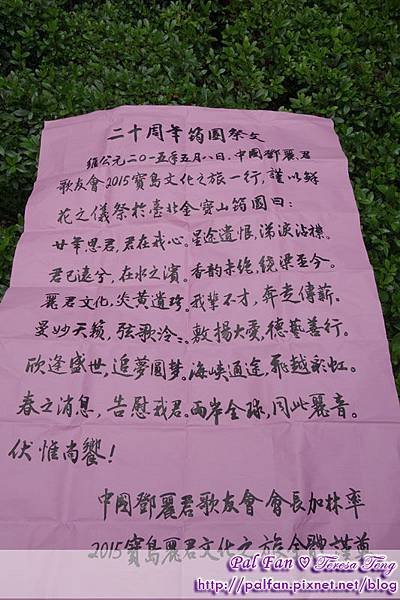 二十周年筠園祭文
維公元二〇一五年五月八日,中國鄧麗君
歌友會2015寶島文化之旅一行,謹以鮮
花之儀祭於臺北金寶山筠園曰:
廿年思君,君在我心。星途遺恨,涕淚沾襟。
君已遠兮,在水之濱。香韵未絕,繞梁至今。
麗君文化,炎黃遺珍。我輩不才,奔走傳薪。
曼妙天籟,弦歌泠泠。敷揚大愛,德藝善行。
欣逢盛世,追夢圓夢。海峽通途,飛越彩虹。
春之消息,告慰我君。兩岸全球,同此麗音。
伏惟尚饗!
中國鄧麗君歌友會會長加林率
2015寶島麗君文化之旅全體謹奠
Pal Fan ♡ Teresa Teng
http://palfan.pixnet.net/blog